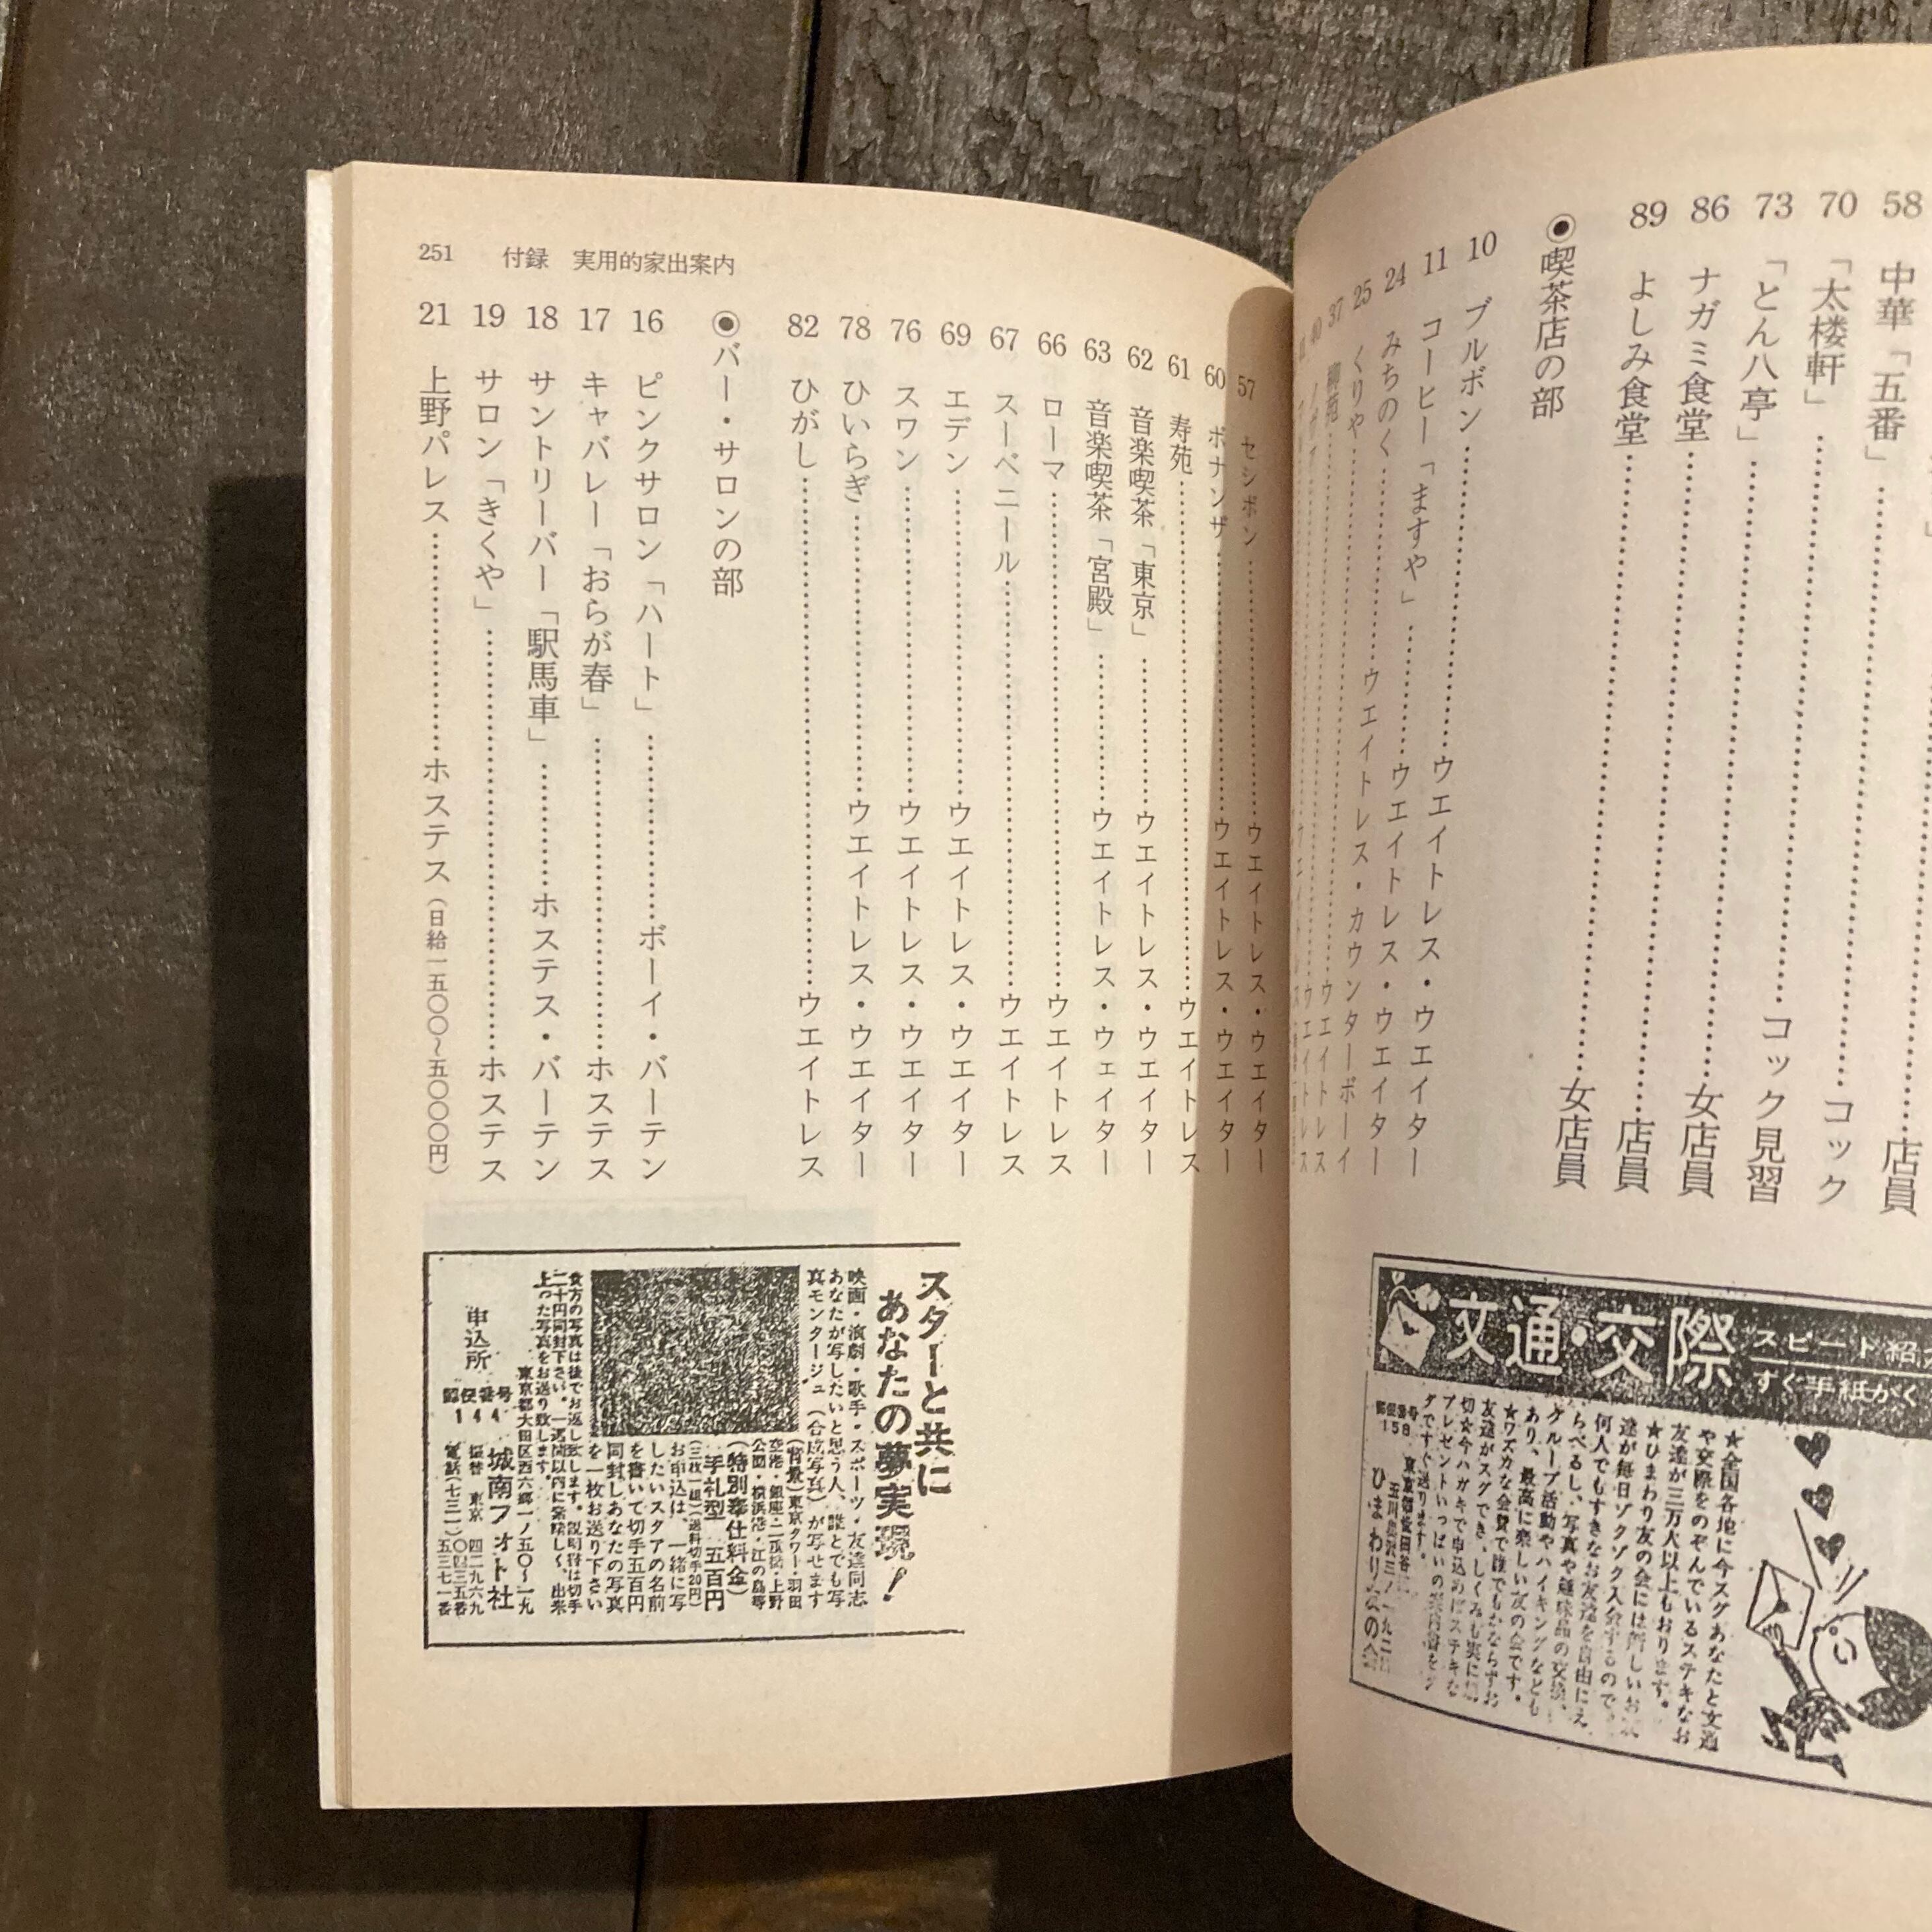 58 中華「五番」……店員
70 「太楼軒」……コック
73 「とん八亭」……コック見習
86 ナガミ食堂……女店員
89 よしみ食堂……店員
女店員
◉喫茶店の部
10 ブルボン……ウエイトレス・ウエイター
11 コーヒー「ますや」……ウエイトレス・ウエイター
24 みちのく……ウエイトレス・カウンターボーイ
25 くりや……ウエイトレス
37
文通・交際
スピード紹
すぐ手紙がく
★全国各地に今スグあなたと文通
や交際をのぞんでいるステキなお
友達が三万人以上もおります。
★ひまわり友の会には新しいお友
達が毎日ゾクゾク入会するので
何人でもすきなお友達を自由にえ
らべるし、写真や趣味品の交換、
グループ活動やハイキングなども
あり、最高に楽しい友の会です。
★ワズカな会費で誰でもかならずお
友達がスグでき、しくみも実に
切☆今ハガキで申込めばステキな
プレゼントいっぱいの
ダですぐ送ります。
158
ひまわり友の会
251 付録 実用的家出案内
57 セシボン……ウエイトレス・ウエイター
60 ボナンザ……ウエイトレス・ウエイター
61 寿苑……ウエイトレス
62 音楽喫茶「東京」……ウエイトレス・ウエイター
63 音楽喫茶「宮殿」……ウエイトレス・ウェイター
66 ローマ……ウエイトレス
67 スーベニール……ウエイトレス
69 エデン……ウエイトレス・ウエイター
76 スワン……ウエイトレス・ウエイター
78 ひいらぎ……ウエイトレス・ウエイター
82 ひがし……ウエイトレス
◉バー・サロンの部
16 ピンクサロン「ハート」……ボーイ・バーテン
17 キャバレー「おらが春」……ホステス
18 サントリーバー「駅馬車」……ホステス・バーテン
19 サロン「きくや」……ホステス
21 上野パレス……ホステス(日給一五〇〇〜五〇〇〇円)
スターと共に
あなたの夢実現!
映画・演劇・歌手・スポーツ・友達同志
あなたが写したいと思う人、誰とでも写
真モンタージュ(合成写真)が写せます
(背景)東京タワー・羽田
空港・銀座・二重橋・上野
公園・横浜港・江の島等
(特別奉仕料金)
手札型 五百円
(三枚一組)(送料切手20円)
お申込は、一緒に写
したいスタアの名前
を書いて切手五百円
同封しあなたの写真
を一枚お送り下さい
貴方の写真は後でお返し致します。説明書は切手
二十円同封下さい。一週間以内に発送し、出来
上った写真をお送り致します。
東京都大田区西六郷一ノ五〇〜一九
申込所 城南フォト社
郵便番号 144
振替 東京 四二九六九
電話(七三一)〇四三五番
五三七一番